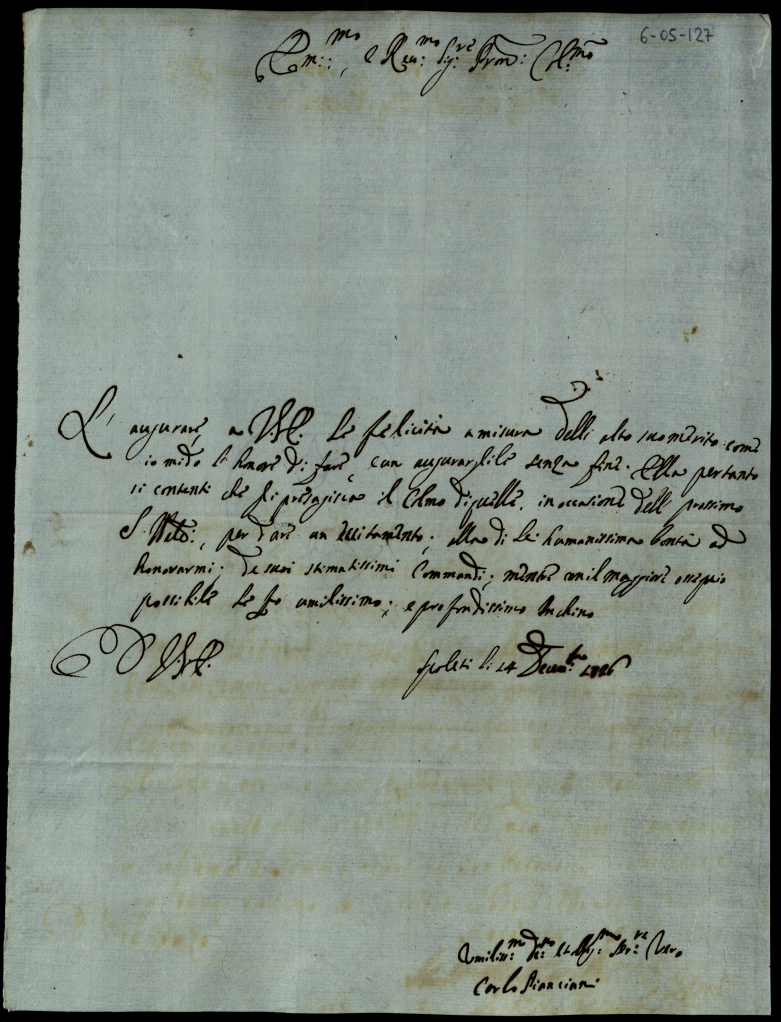 6-05-127
Em:mo, e Reu:mo Sig:re Pron: Col:mo
L'augurare, a V.E. Le felicità a misura dell alto suo merito come
io mi do l'honore di fare, e un augurargliele senza fine. Ella pertanto
si contenti che gli presagisca il Colmo di quelle, in occasione dell prossimo
S. Natale:, per dare un eccitamento, alla di Lei humanissima bontà ad
honorarmi, de suoi stimatissimi Commandi; mentre con il maggiore ossequio
possibile Le fo umilissimo, e profondissimo Inchino
D V.E. Spoleti li 14 Decem:bre
Umiliss:mo De:mo et Oblig:mo Ser:re Vero
Carlo Pianciani